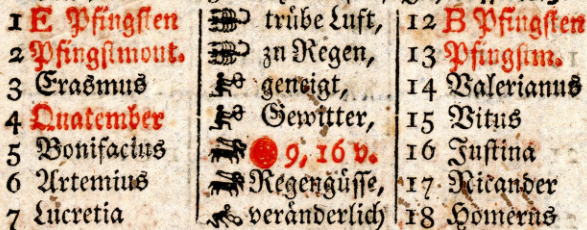 1 E Pfingsten trübe Luft, 12 B Pfingsten
2 Pfingstmont. zu Regen, 13 Pfingstm.
3 Erasmus geneigt, 14 Valerianus
4 Quatember Gewitter, 15 Vitus
5 Bonifacius 9, 16 v. 16 Justina
6 Artemius Regengüsse, 17 Nicander
7 Lucretia veränderlich 18 Homerus